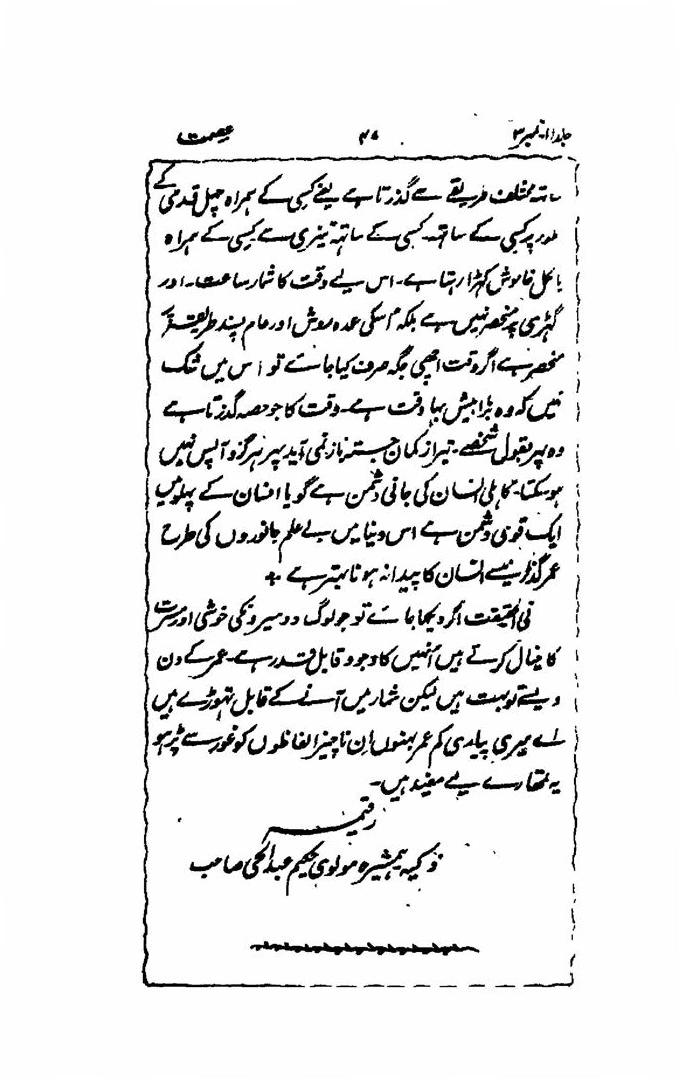 جلد ۱۱ نمبر ۳ ۴۸ عصمت
ساتہ مختلف طریقے سے گذرتا ہے یعنے کسی کے ہمراہ چہل قدمی کے
طور پر کسی کے ساتہ۔ کسی کے ساتہ تیزی سے کسی کے ہمراہ
بالکل خاموش کہڑا رہتا ہے۔ اس لیے وقت کا شمار ساعت۔ اور
گہڑی پر منحصر نہیں ہے بلکہ اُسکی عمدہ روش اور عام پسند طریقہ پر
منحصر ہے اگر وقت اچھی جگہ صرف کیا جائے تو اس میں شک
نہیں کہ وہ بڑا بیش بہا وقت ہے۔ وقت کا جو حصہ گذرتا ہے
وہ پہر بقول شخصے۔ تیر از کمان جستہ باز نمی آید پہر ہرگز واپس نہیں
ہو سکتا۔ کاہلی انسان کی جانی دشمن ہے گویا انسان کے پہلو میں
ایک قوی دشمن ہے اس دنیا میں بے علم جانوروں کی طرح
عمر گذارنیسے انسان کا پیدا نہ ہونا بہتر ہے ۔
فی الحقیقت اگر دیکھا جائے تو جو لوگ دوسرونکی خوشی اور مسرت
کا خیال کرتے ہیں اُنہیں کا وجود قابل قدر ہے۔ عمر کے دن
ویسے تو بہت ہیں لیکن شمار میں آنے کے قابل تہوڑے ہیں
اے میری پیاری کم عمر بہنوں اِن ناچیز الفاظوں کو غور سے پڑہو
یہ تمھارے لیے مفید ہیں۔
رقیمہ
ذکیہ ہمشیرہ مولوی حکیم عبدالحی صاحب